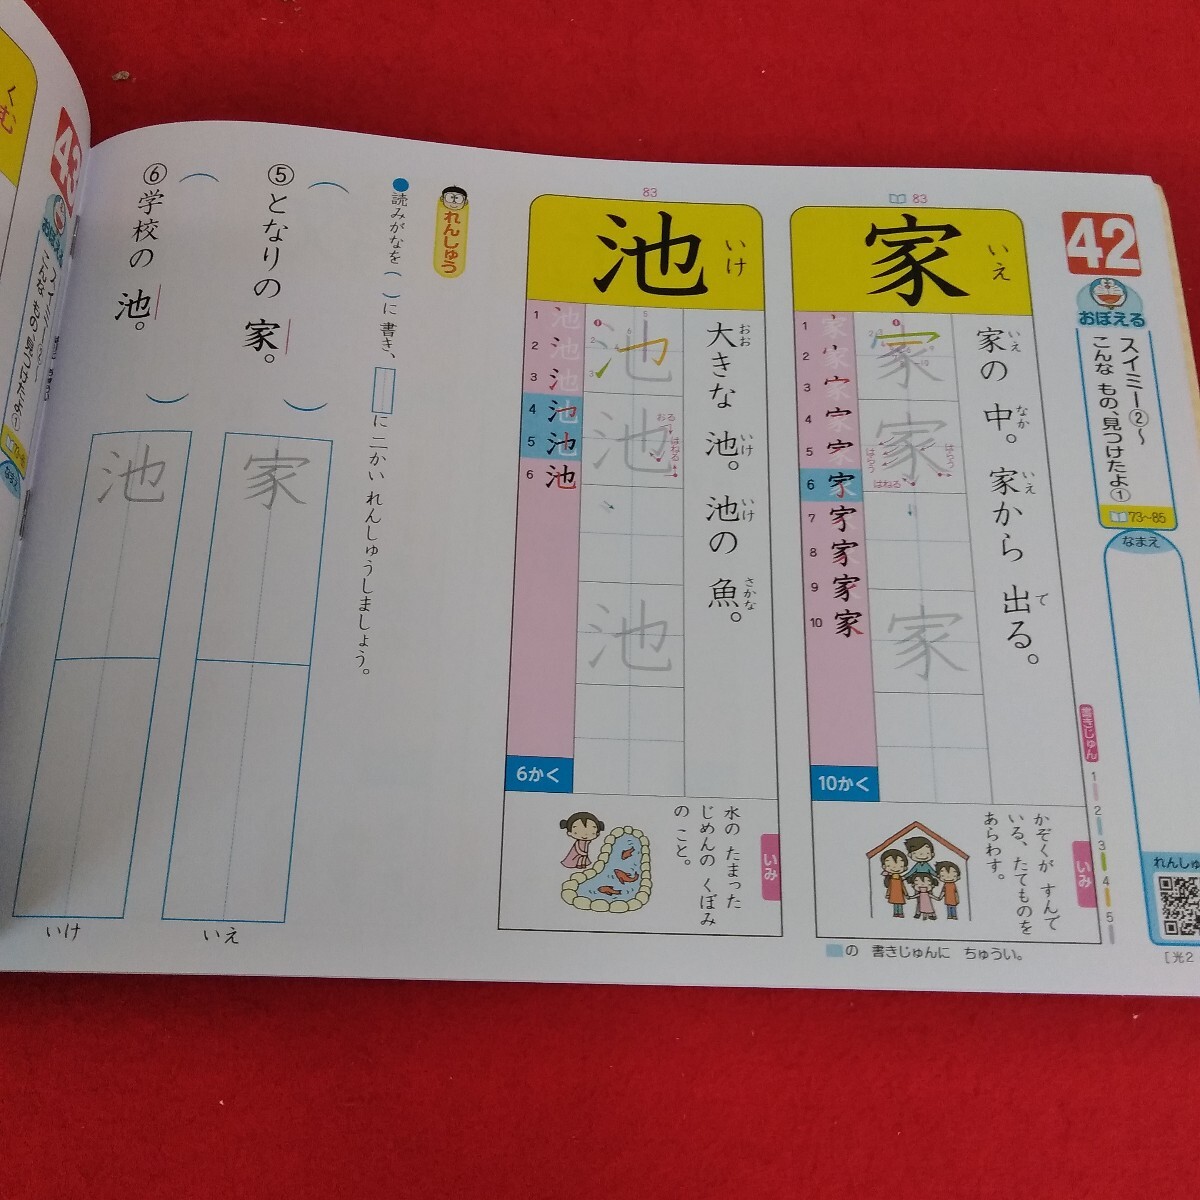 42
おぼえる
スイミー②〜
こんな もの、見つけたよ①
73〜85
なまえ
れんしゅ
[光2
書きじゅん
1
2
3
4
5
83
家
いえ
家の 中。 家から 出る。
いえ
なか
いえ
で
はらう
はらう
はねる
1
2
3
4
5
6
7
8
9
10
10かく
いみ
かぞくが すんで
いる、たてものを
あらわす。
の 書きじゅんに ちゅうい。
83
池
いけ
大きな 池。 池の 魚。
おお
いけ
いけ
さかな
おる
はねる
1
2
3
4
5
6
6かく
いみ
水の たまった
じめんの くぼみ
の こと。
れんしゅう
●読みがなを( )に 書き、 に 二かい れんしゅうしましょう。
⑤となりの 家。
( )
家
いえ
⑥学校の 池。
( )
池
いけ
43
おぼえる
くむ
なまえ